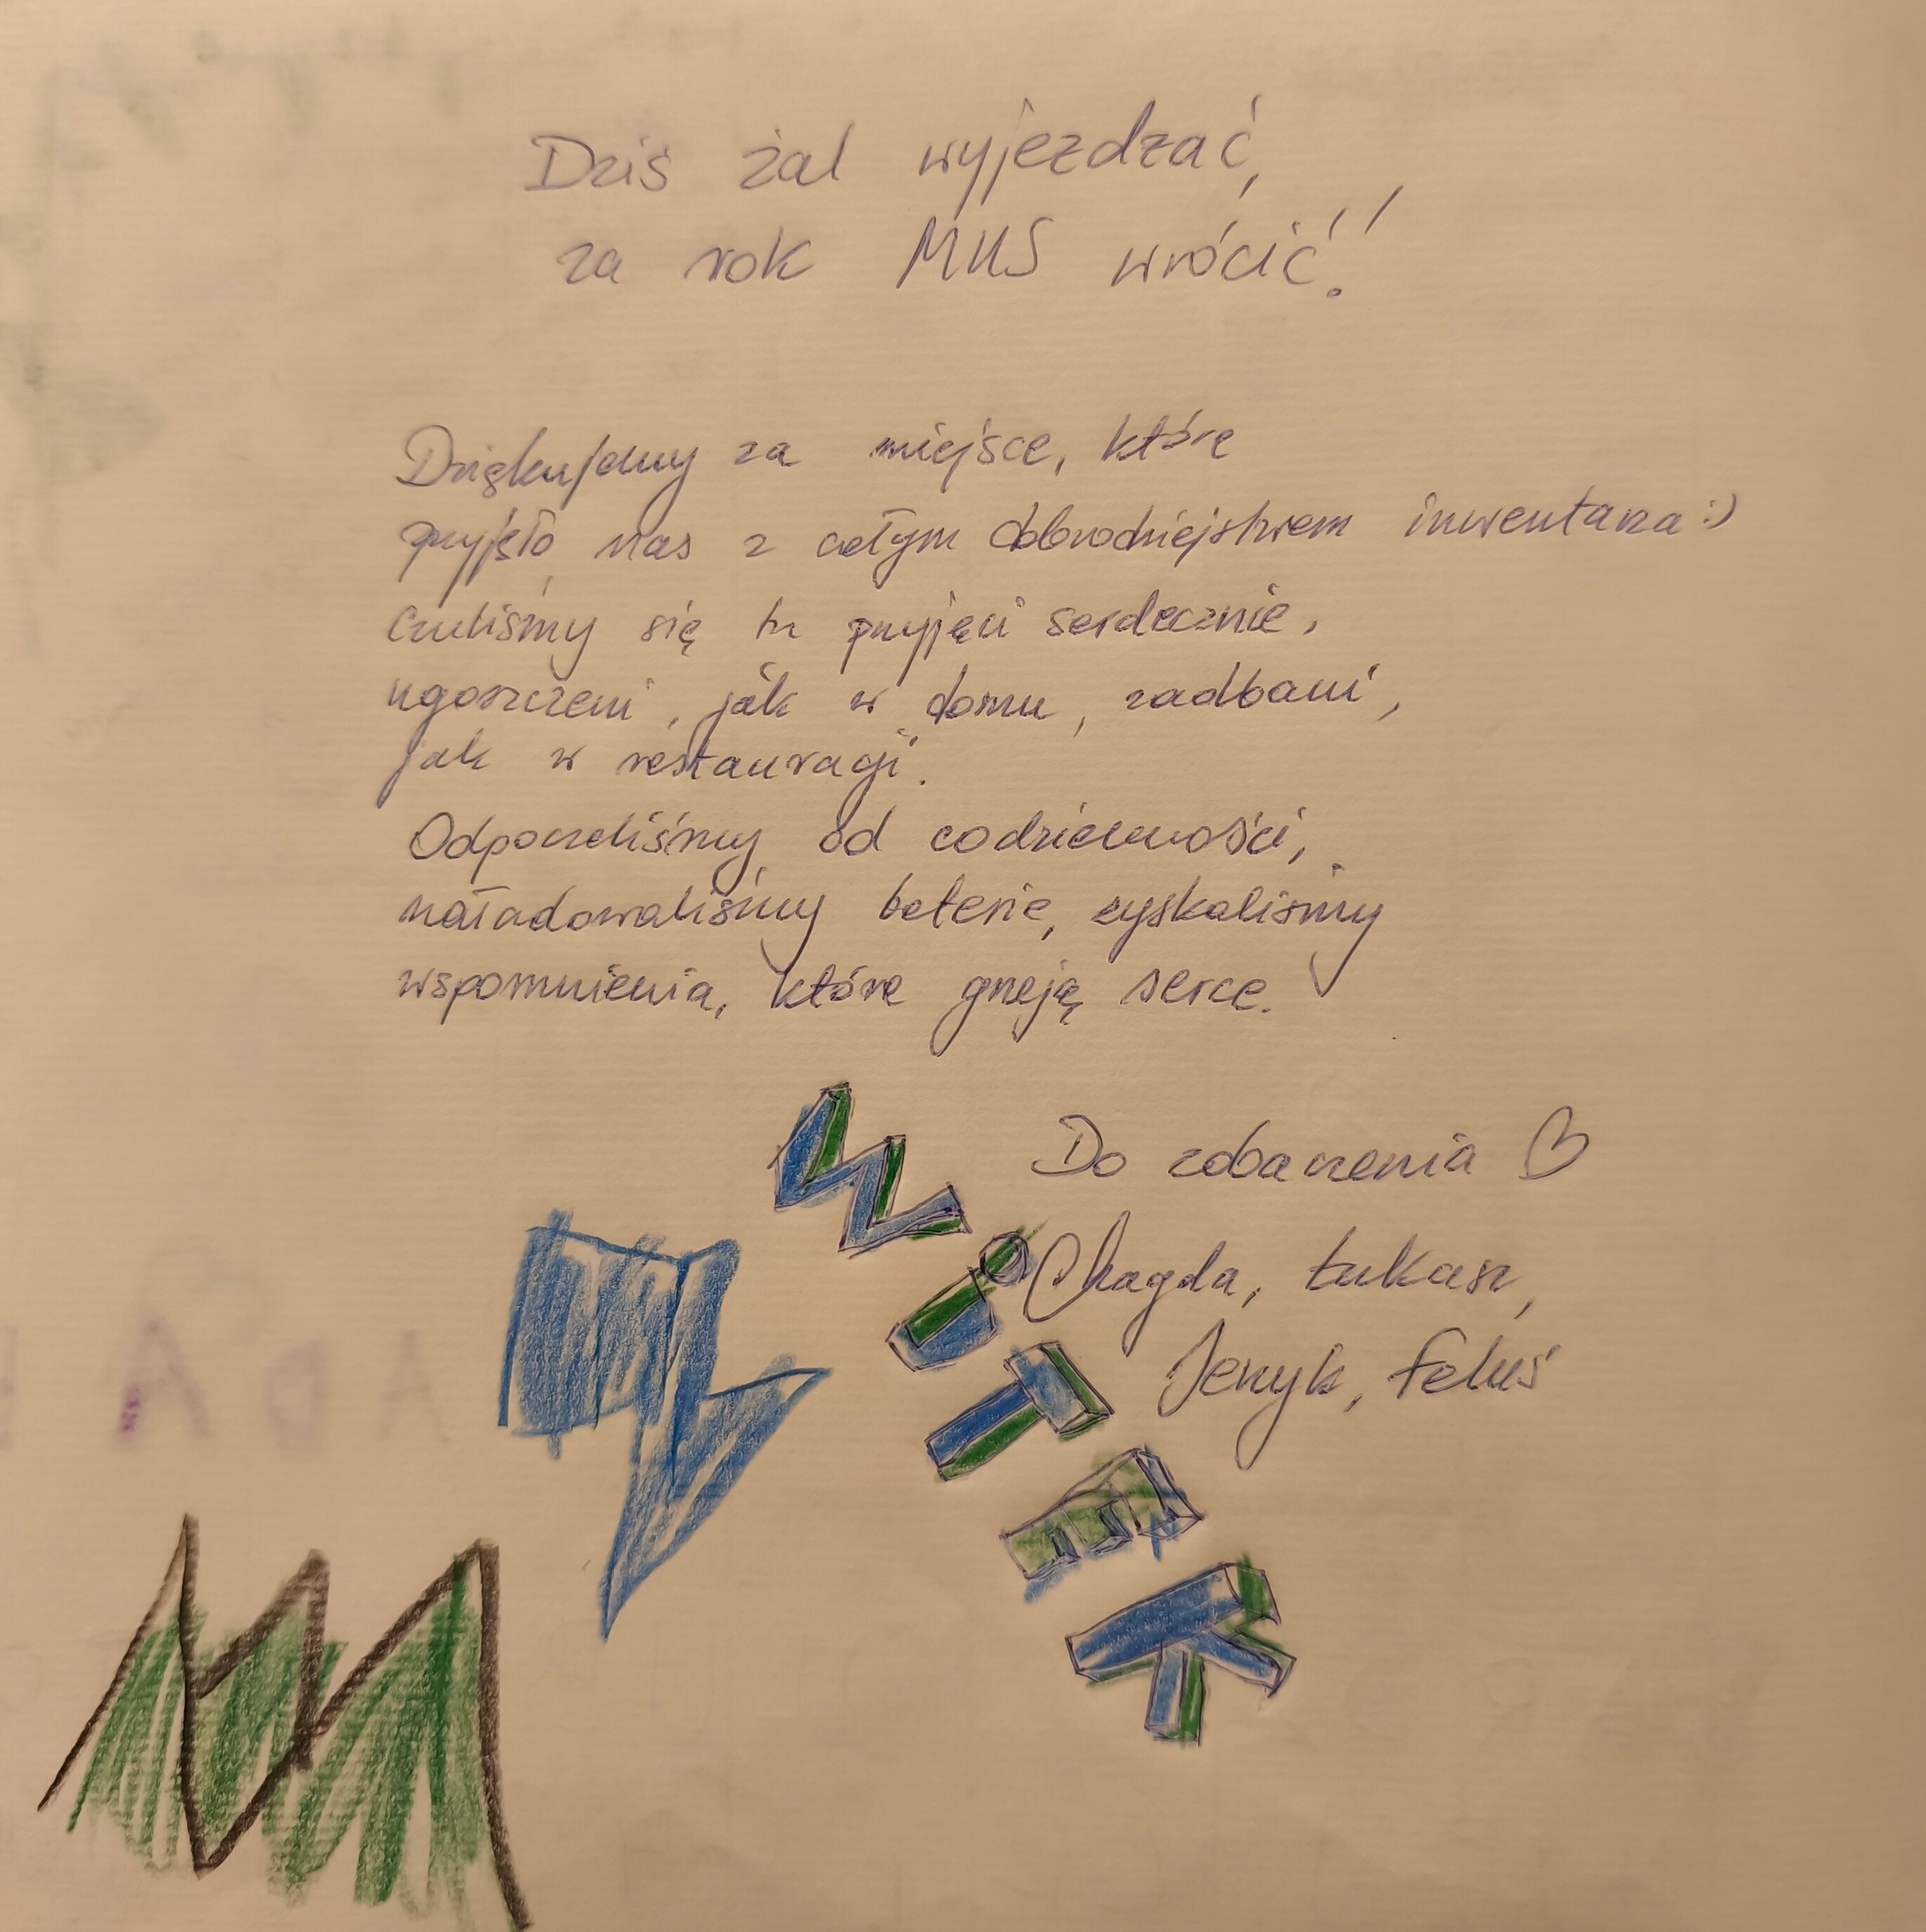 Dziś żal wyjeżdżać,
za rok MUS wrócić!
Dziękujemy za miejsce, które
przyjęło nas z całym dobrodziejstwem inwentarza :)
Czuliśmy się tu przyjęci serdecznie,
ugoszczeni, jak w domu, zadbani,
jak w restauracji.
Odpoczeliśmy od codzienności,
naładowaliśmy baterie, zyskaliśmy
wspomnienia, które grzeją serce.
Do zobaczenia ♡
Magda, Łukasz,
Jerzyk, Feluś
WiTEK